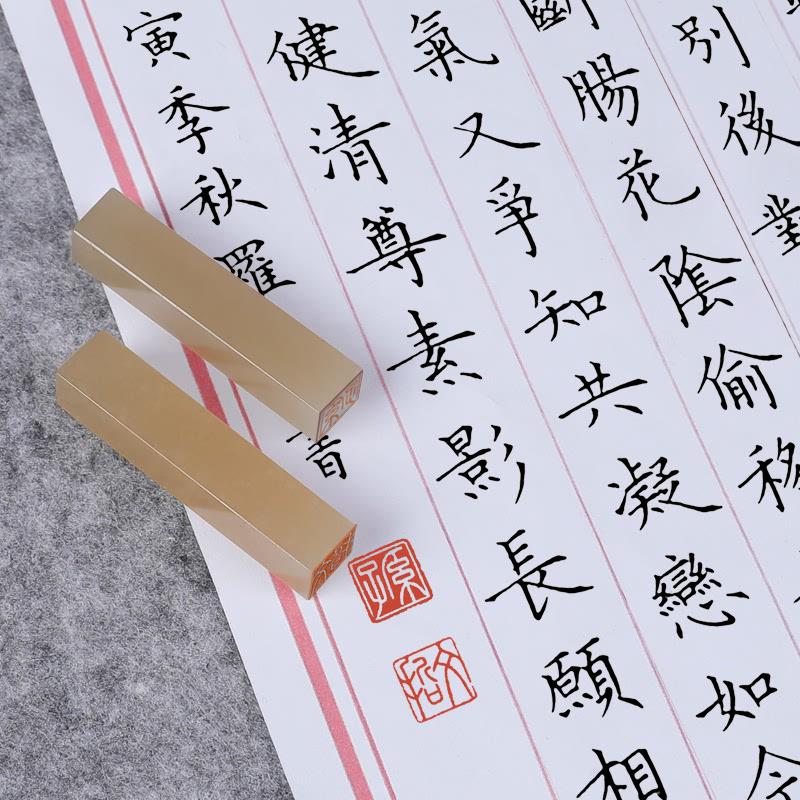 別後對
斷腸花陰偷移
氣又爭知共凝戀如今
健清尊素影長願相
寅季秋羅
孫